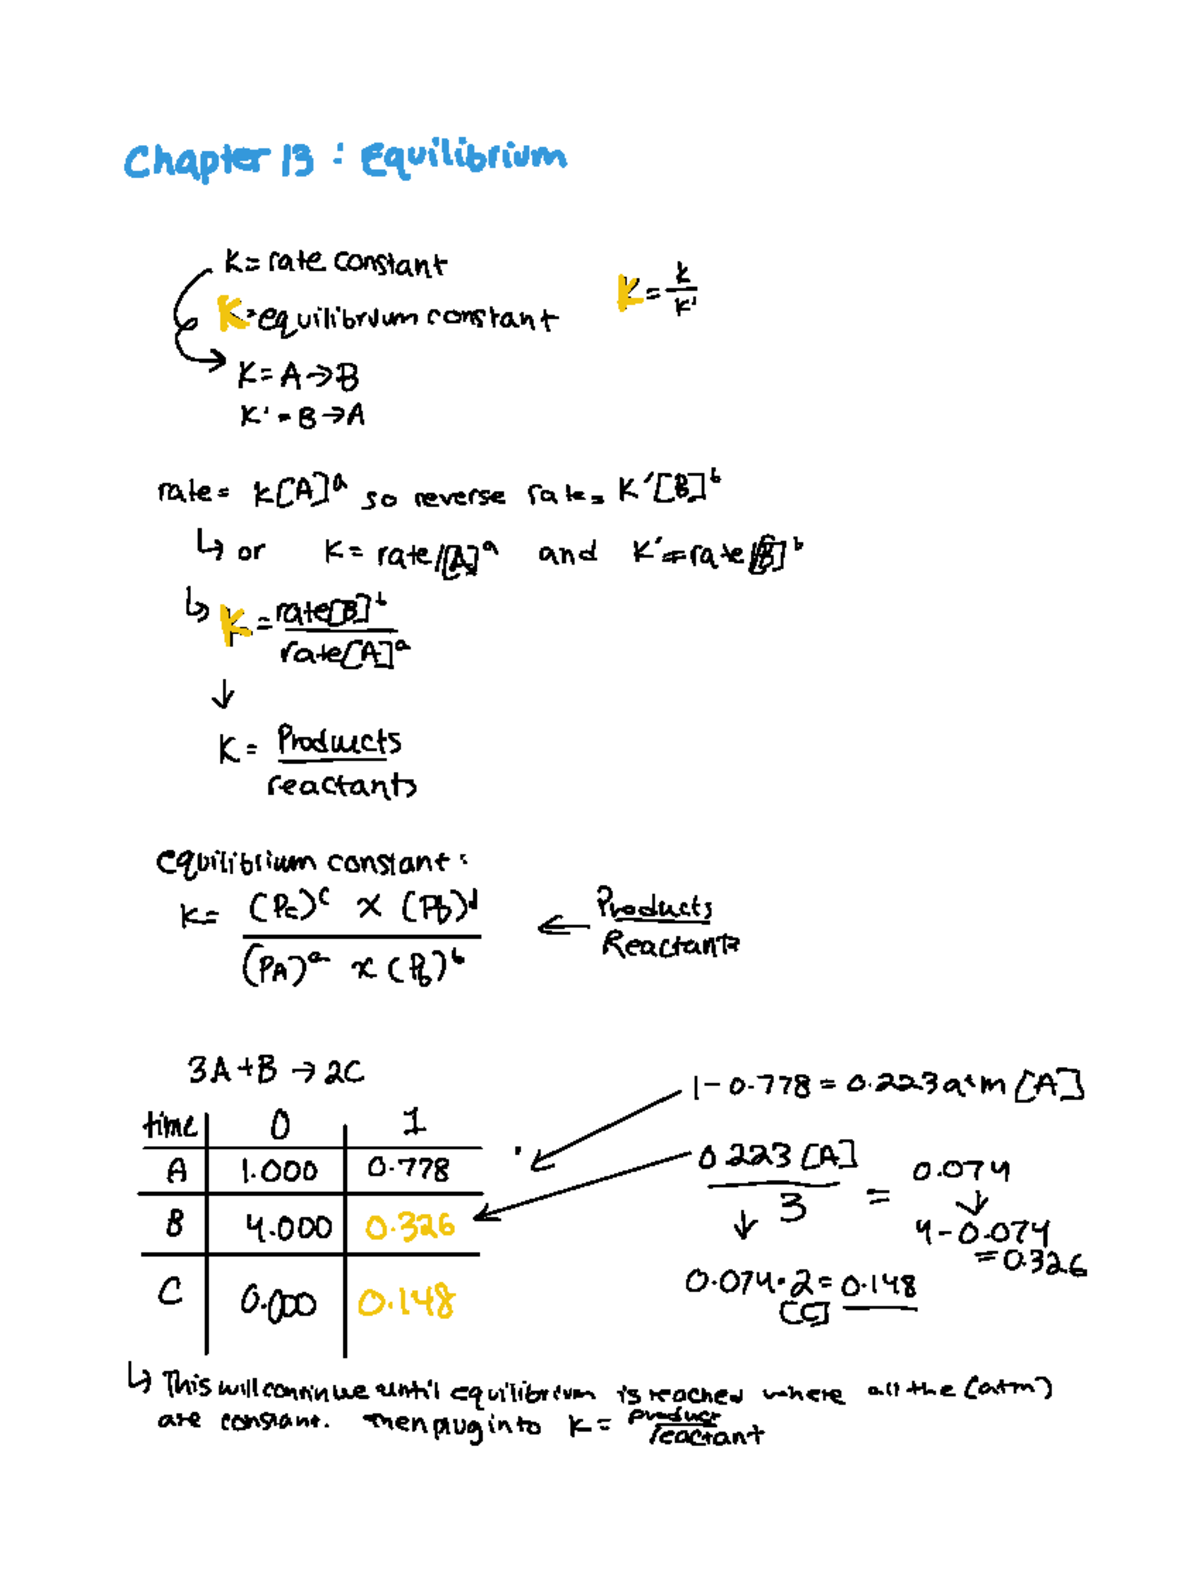 Chapter 13 : Equilibrium
k = rate constant
K = equilibrium constant
K = k / k'
k = A → B
k' = B → A
rate = k[A]ᵃ so reverse rate = k'[B]ᵇ
↳ or k = rate/[A]ᵃ and k' = rate/[B]ᵇ
↳ K = rate[B]ᵇ / rate[A]ᵃ
↓
K = Products / reactants
equilibrium constant :
K = (Pc)ᶜ x (Pb)ᵈ / (PA)ᵃ x (Pb)ᵇ ← Products / Reactants
3A + B → 2C
time 0 1
A 1.000 0.778
B 4.000 0.326
C 0.000 0.148
1 - 0.778 = 0.223 atm [A]
0.223 [A] / 3 = 0.074
↓
4 - 0.074
= 0.326
↓
0.074 · 2 = 0.148
[C]
↳ This will continue until equilibrium is reached where all the (atm)
are constant. Then plug into K = product / reactant